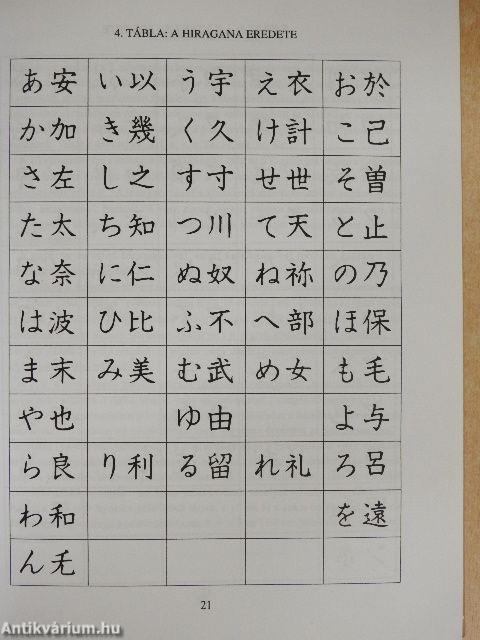 4. TÁBLA: A HIRAGANA EREDETE
あ安 い以 う宇 え衣 お於
か加 き幾 く久 け計 こ己
さ左 し之 す寸 せ世 そ曽
た太 ち知 つ川 て天 と止
な奈 に仁 ぬ奴 ね祢 の乃
は波 ひ比 ふ不 へ部 ほ保
ま末 み美 む武 め女 も毛
や也 ゆ由 よ与
ら良 り利 る留 れ礼 ろ呂
わ和 を遠
ん无
21
Antikvárium.hu